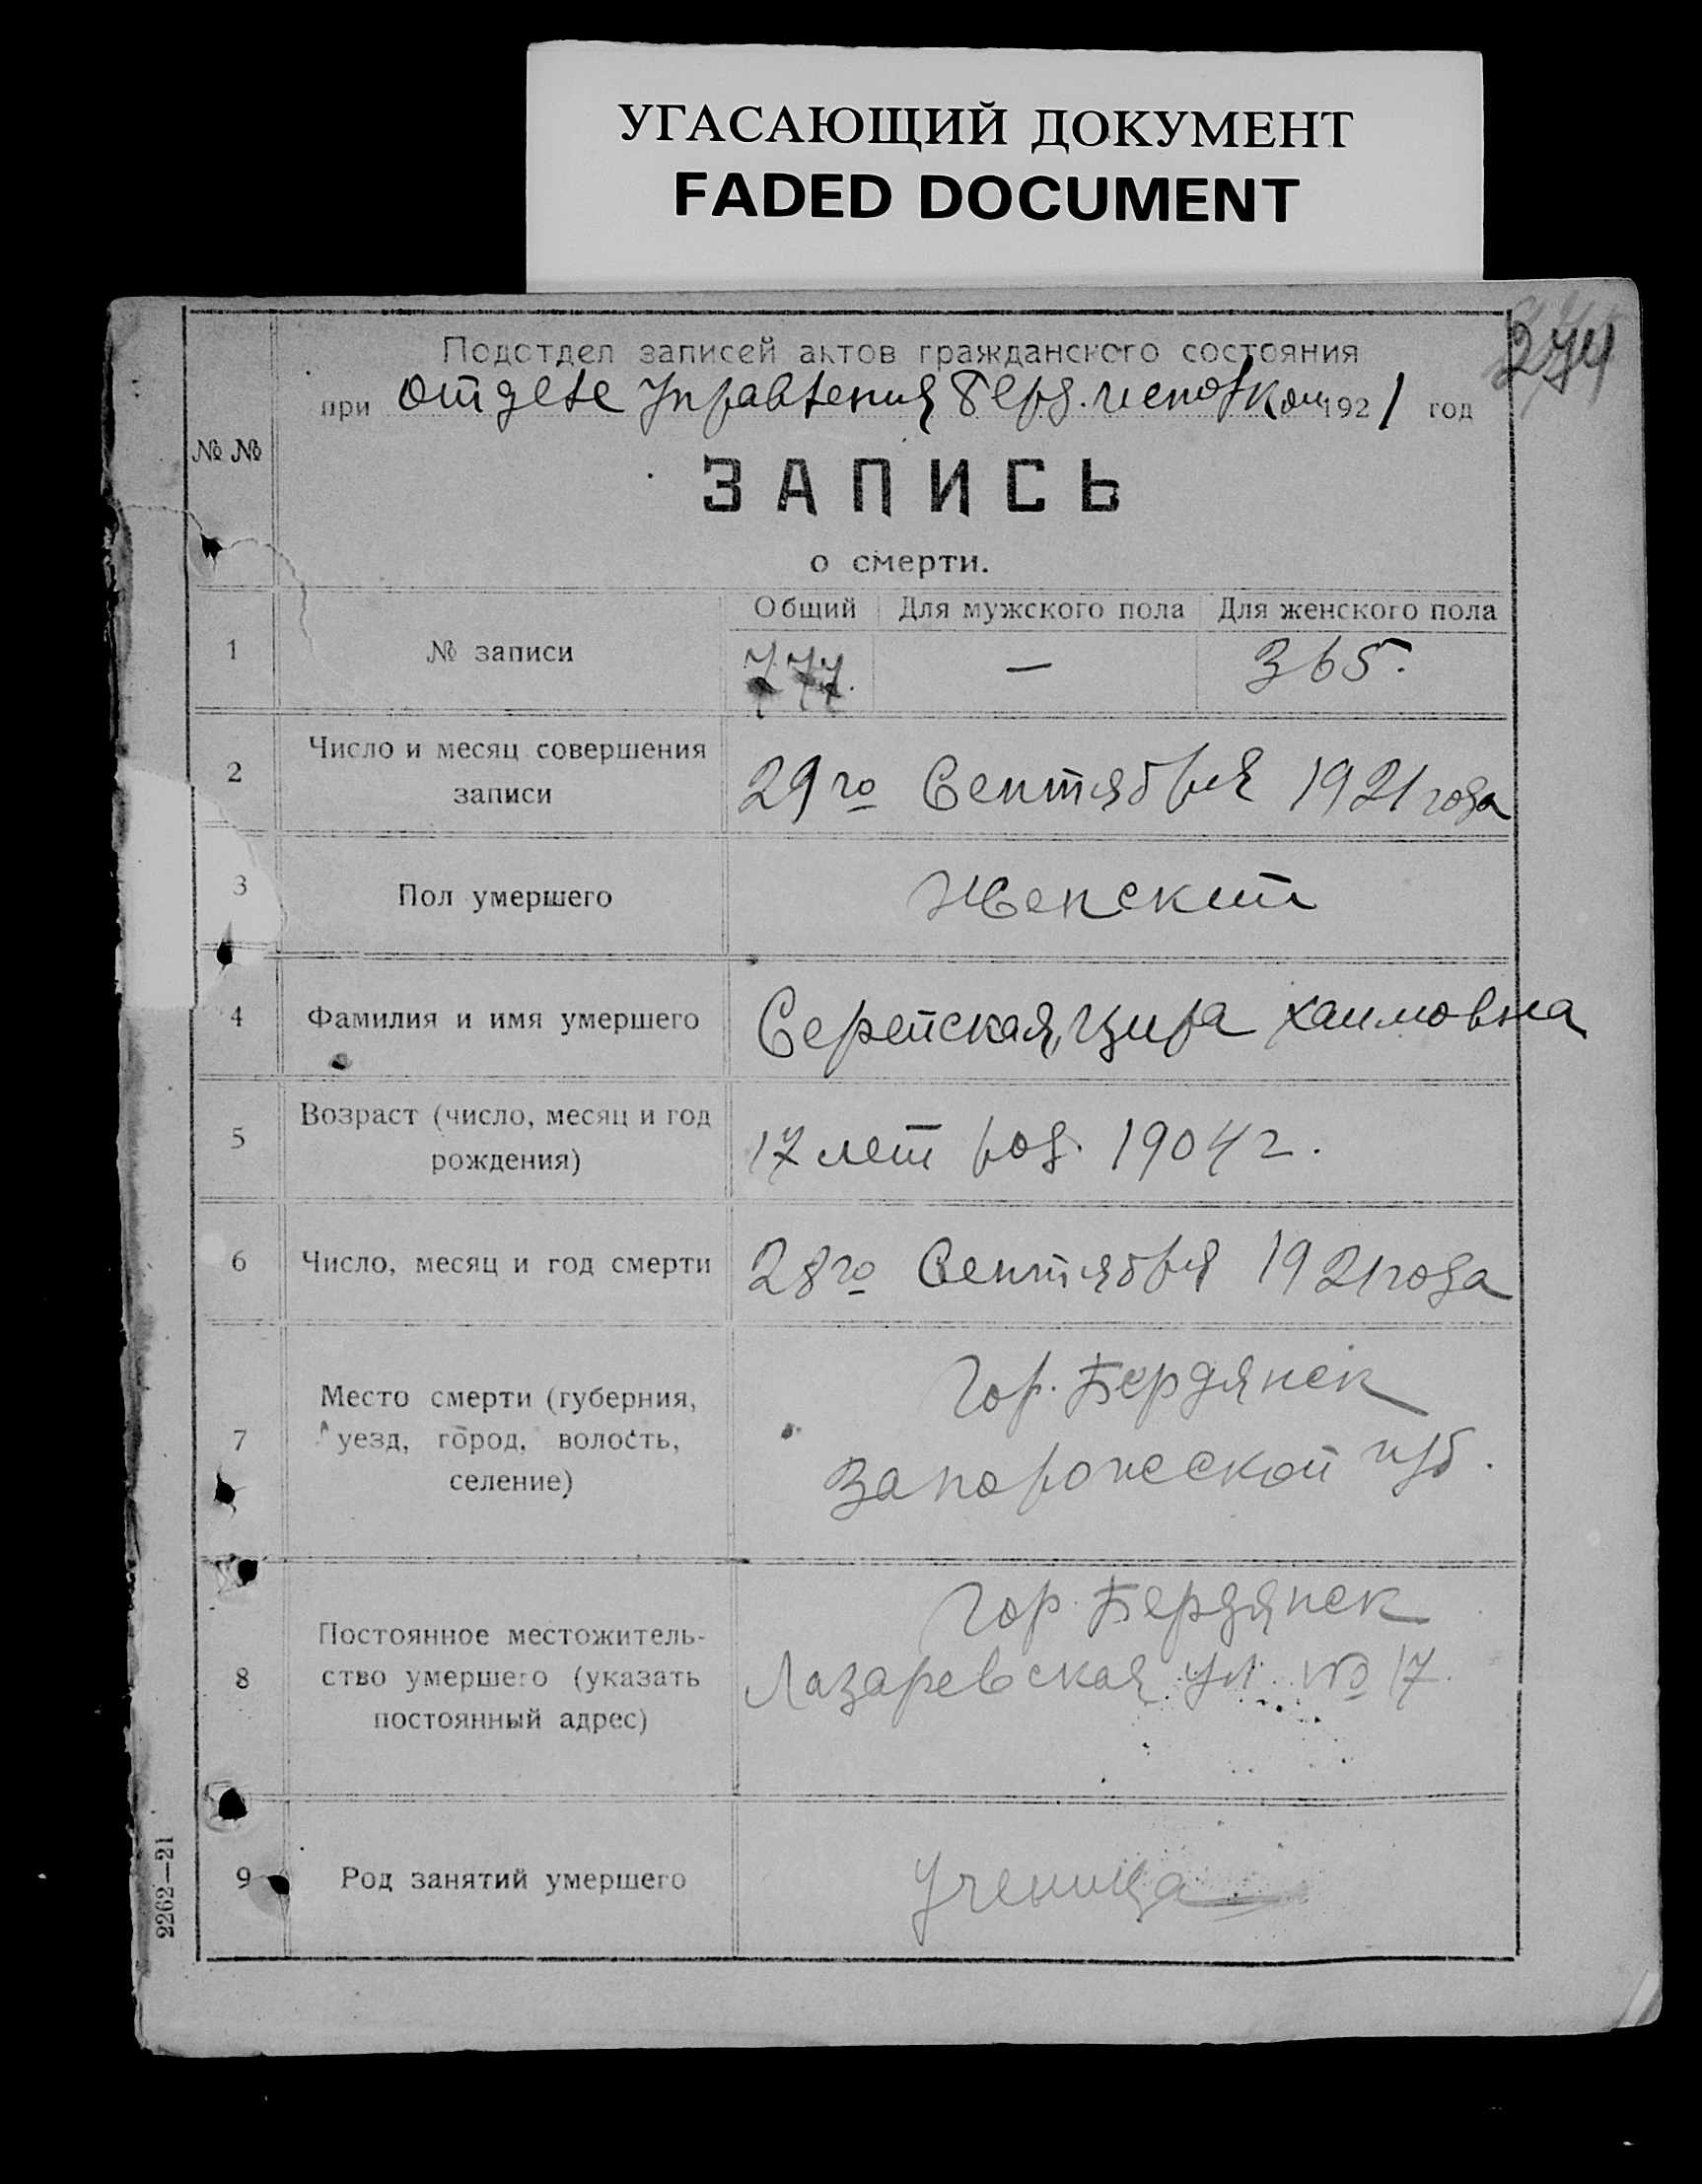 УГАСАЮЩИЙ ДОКУМЕНТ
FADED DOCUMENT
274
Подотдел записей актов гражданского состояния
при Отделе Управления Берд. исполком 1921 год
№ №
ЗАПИСЬ
о смерти.
Общий Для мужского пола Для женского пола
1 № записи 777. — 365.
2 Число и месяц совершения
записи
29го Сентября 1921 года
3 Пол умершего Женский
4 Фамилия и имя умершего Серейская, Цира Хаимовна
5 Возраст (число, месяц и год
рождения)
17 лет род. 1904 г.
6 Число, месяц и год смерти 28го Сентября 1921 года
7 Место смерти (губерния,
уезд, город, волость,
селение)
Гор. Бердянск
Запорожской губ.
8 Постоянное местожитель-
ство умершего (указать
постоянный адрес)
Гор. Бердянск
Лазаревская ул. № 17.
9 Род занятий умершего Ученица
2262—21